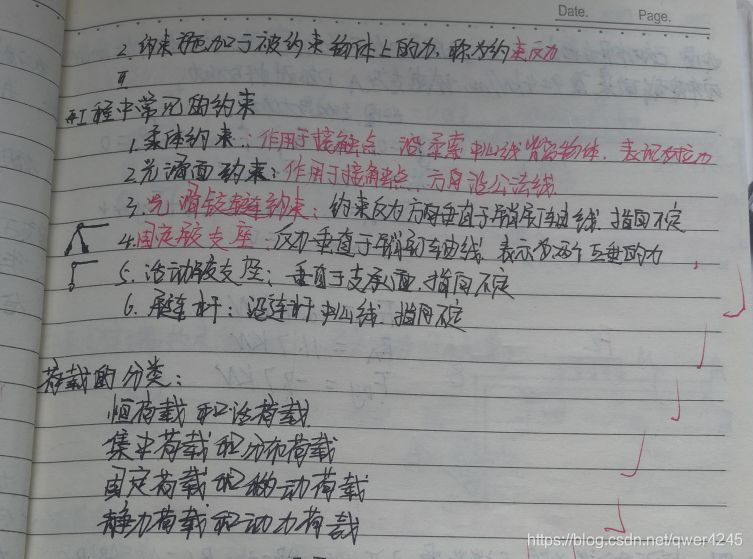 Date. Page.
2. 约束施加于被约束物体上的力,称为约束反力
工程中常见的约束
1.柔体约束:作用于接触点 沿柔索中心线背离物体. 表现为拉力
2.光滑面约束:作用于接触点、方向沿公法线
3.光滑铰链约束:约束反力方向垂直于销钉轴线,指向不定
4.固定铰支座:反力垂直于销钉轴线,表示为两个互垂的力
5.活动铰支座:垂直于支承面,指向不定
6.链杆:沿连杆中心线.指向不定
荷载的分类:
恒荷载和活荷载
集中荷载和分布荷载
固定荷载和移动荷载
静力荷载和动力荷载
https://blog.csdn.net/qwer4245